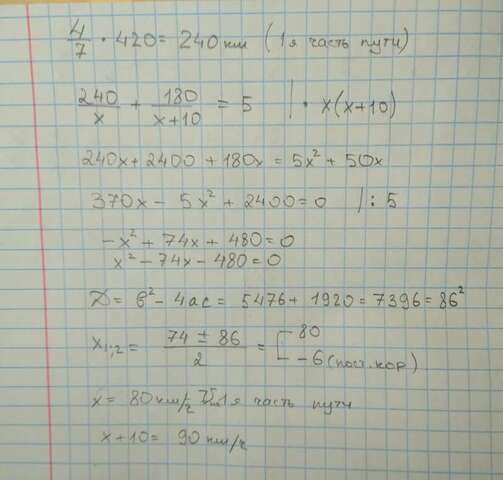 4/7 · 420 = 240 км (1я часть пути)
240/x + 180/(x+10) = 5 | · x(x+10)
240x + 2400 + 180x = 5x² + 50x
370x - 5x² + 2400 = 0 | : 5
-x² + 74x + 480 = 0
x² - 74x - 480 = 0
Д = b² - 4ac = 5476 + 1920 = 7396 = 86²
x₁;₂ = (74 ± 86)/2 = [80
-6 (пост. кор)
x = 80 км/ч 1я часть пути
x+10 = 90 км/ч